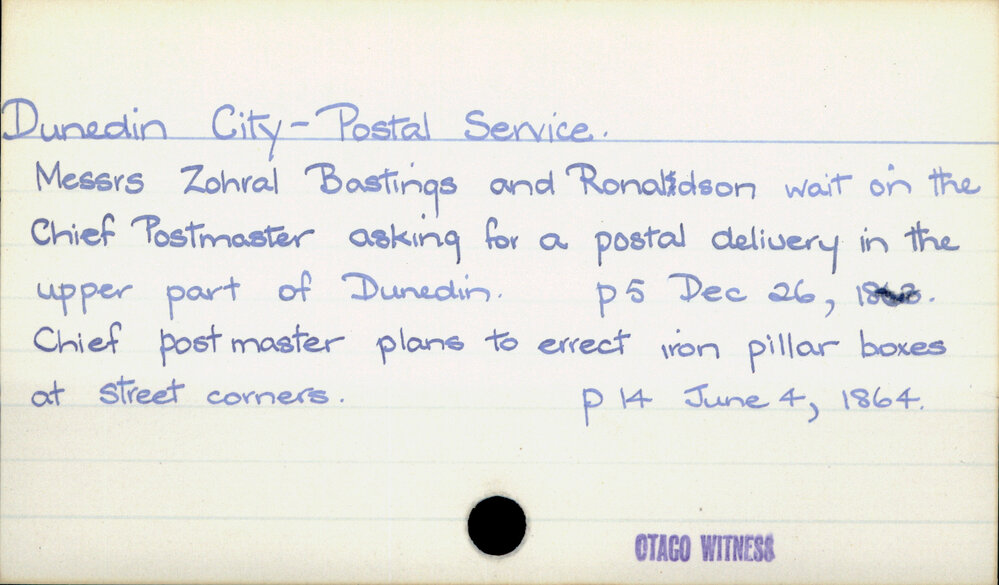 Dunedin City - Postal Service.
Messrs Zohral Bastings and Ronaldson wait on the
Chief Postmaster asking for a postal delivery in the
upper part of Dunedin. p 5 Dec 26, 1863.
Chief postmaster plans to errect iron pillar boxes
at street corners. p 14 June 4, 1864.
OTAGO WITNESS